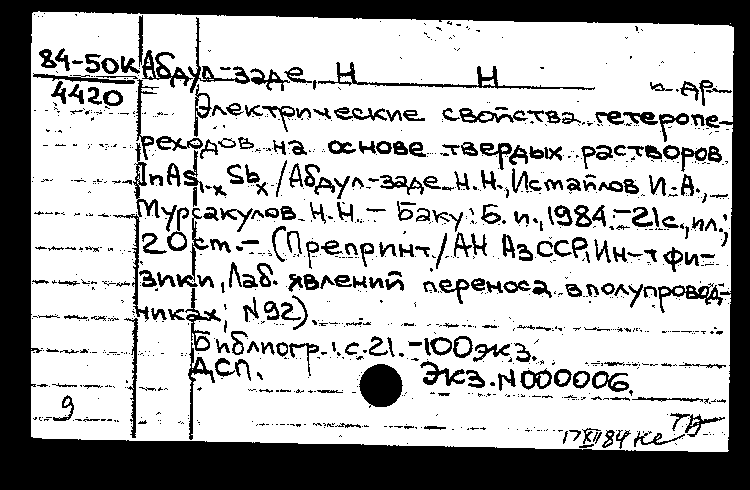 84-50К Абдул-заде, Н Н и др
4420
Электрические свойства гетеропе-
реходов на основе твердых растворов
InAs1-xSbx / Абдул-заде Н.Н., Исмайлов И.А.,
Мурсакулов Н.Н. – Баку: Б.и., 1984. – 21с., ил.;
20 cm. – (Препринт / АН АзССР, Ин-т фи-
зики, Лаб. явлений переноса в полупровод-
никах; N92).
Библиогр.: с.21. – 100 экз.
ДСП. Экз. N000006.
9
17 XII 84 Ке